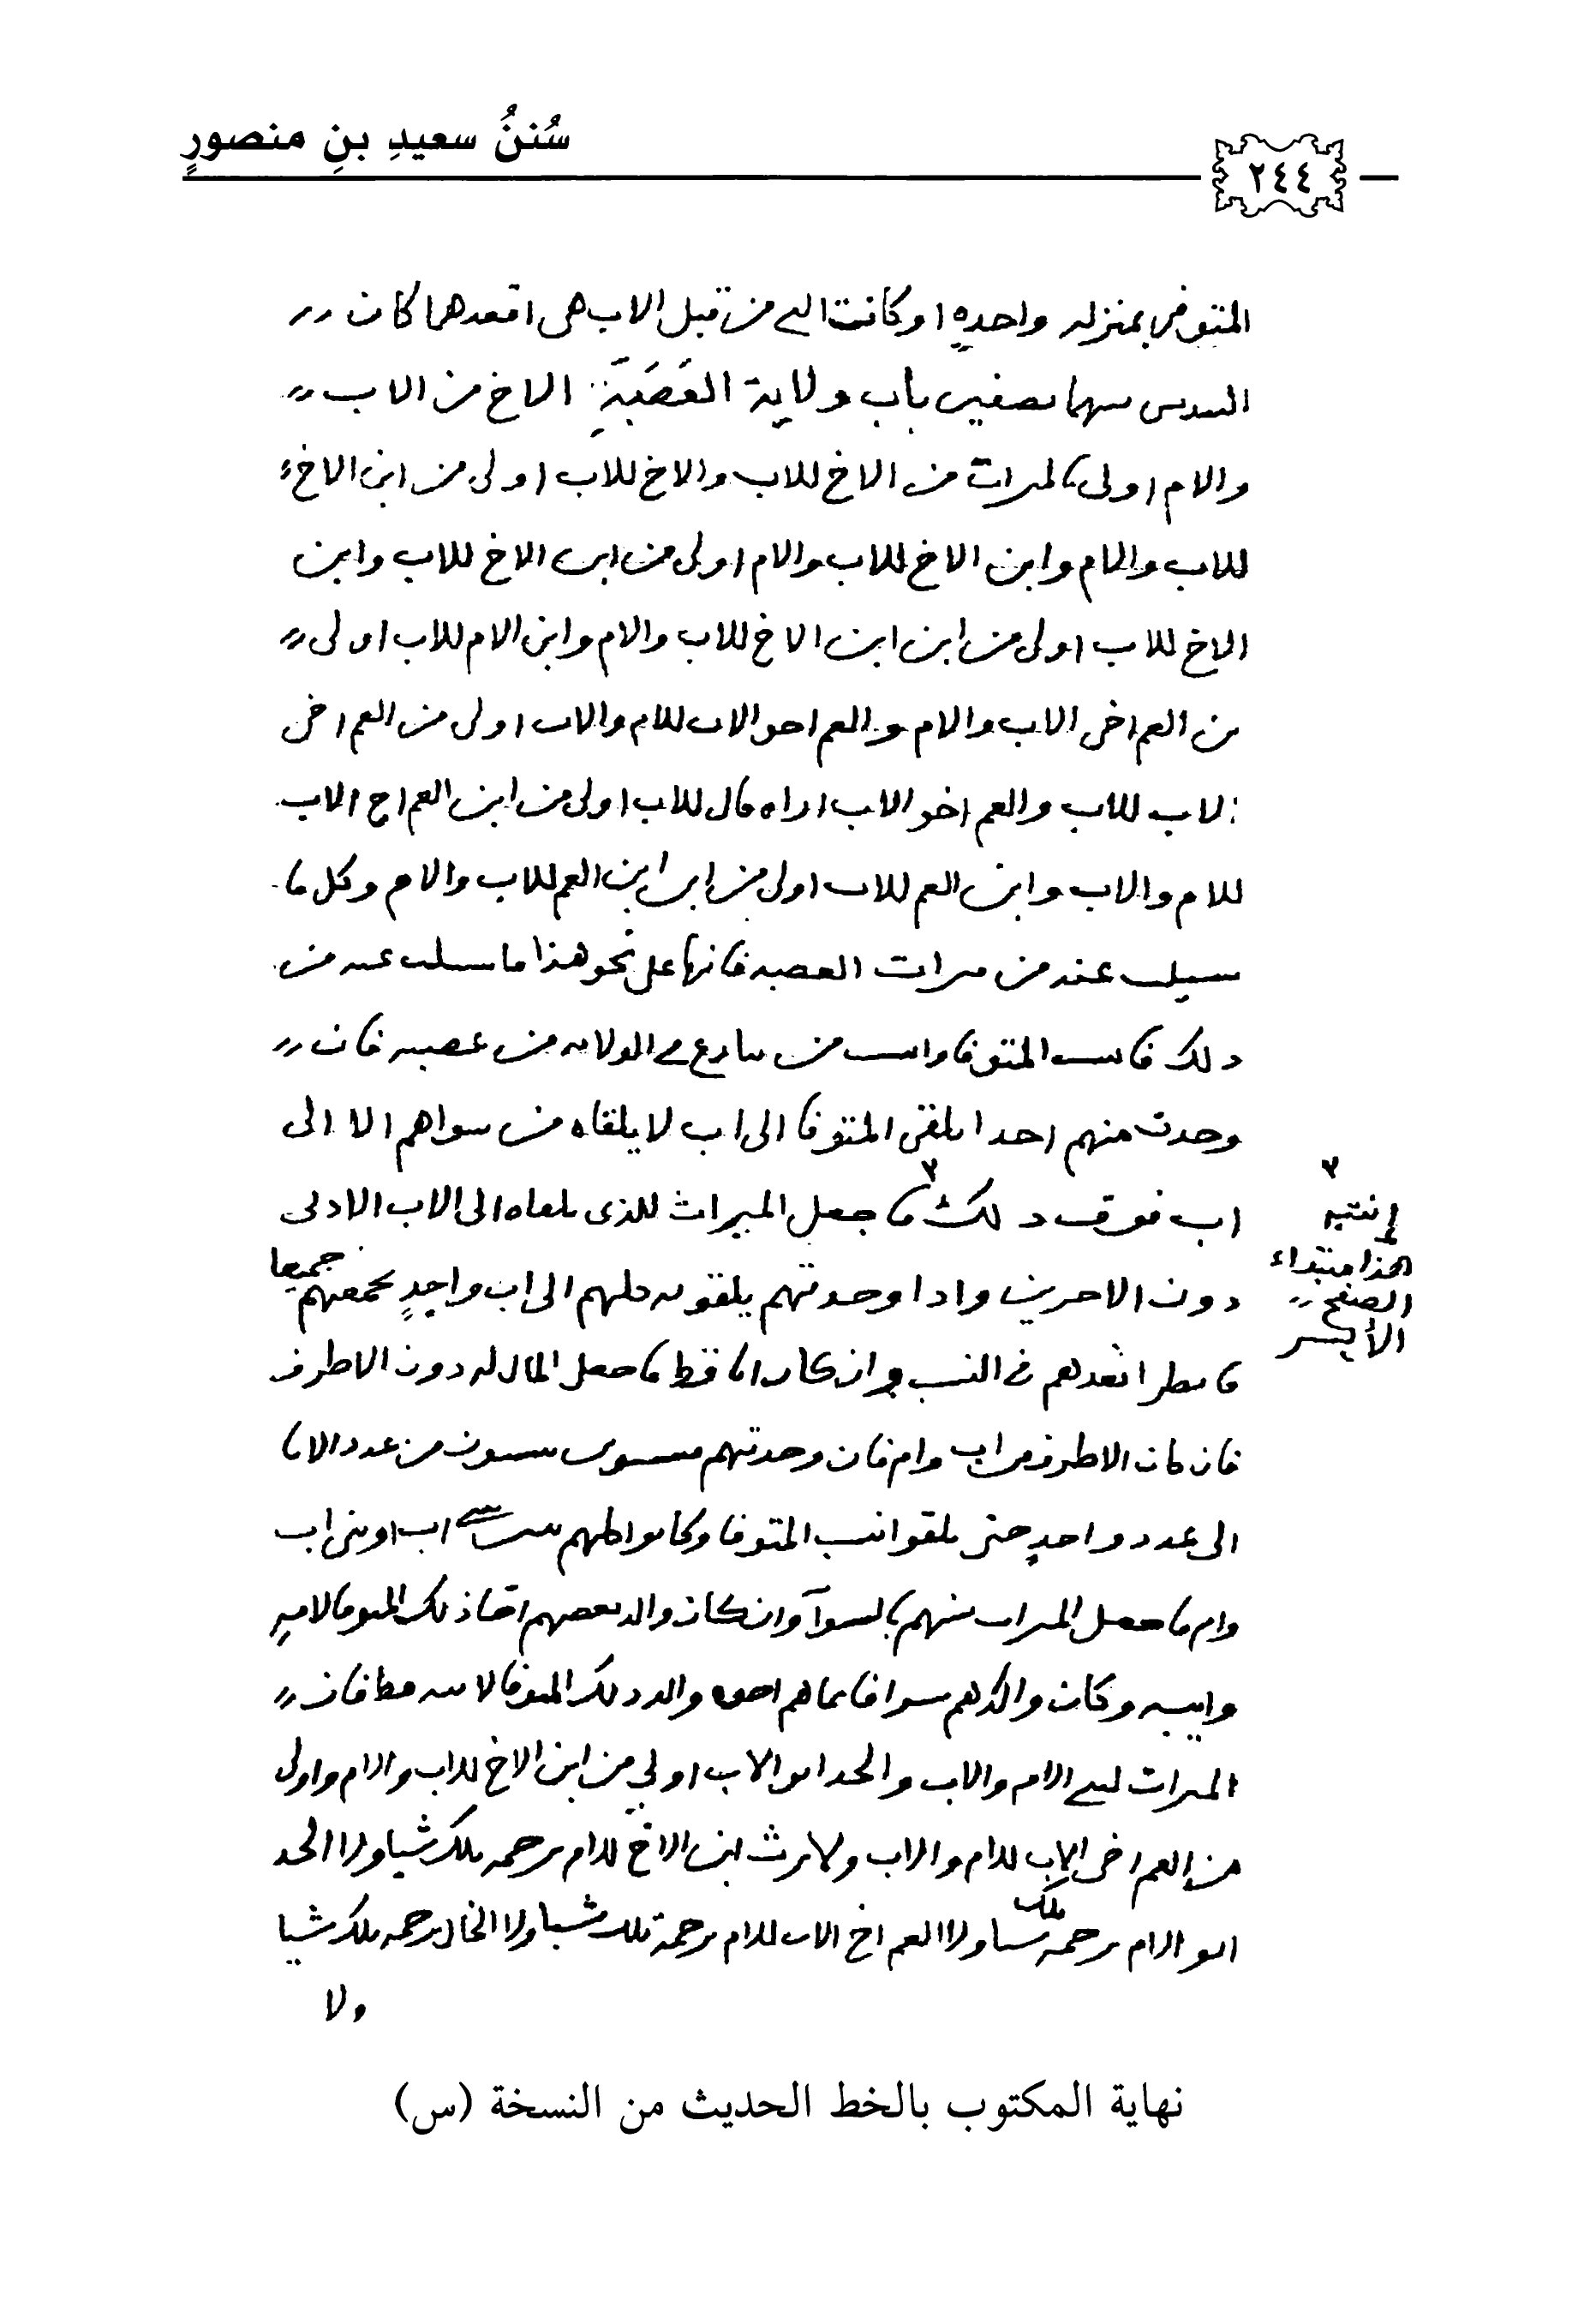 سُننُ سعيدِ بنِ منصورٍ
٢٤٤
المتوفى بمنزله واحده او كانت التي من قبل الاب هي اقعدهما كان
السدس بينهما نصفين باب ولاية العَصَبَة الاخ من الاب
والام اولى بالميراث من الاخ للاب والاخ للاب اولى من ابن الاخ
للاب والام وابن الاخ للاب والام اولى من ابن الاخ للاب وابن
الاخ للاب اولى من ابن ابن الاخ للاب والام وابن الام للاب اولى
من العم اخى الاب والام والعم اخو الاب للام والاب اولى من العم اخى
الاب للاب والعم اخو الاب اراه قال للاب اولى من ابن العم اخ الاب
للام والاب وابن العم للاب اولى من ابن ابن العم للاب والام وكل ما
سيلت عنه من ميراث العصبه فانها على نحو هذا ما سيلت عنه من
ذلك فانسب المتوفا وانسب من ينازع في الولايه من عصبيه فان
وجدت منهم احدا يلقى المتوفا الى اب لا يلقاه من سواهم الا الى
اب فوق ذلك ٣ فاجعل الميراث للذى يلقاه الى الاب الادنى
دون الاخرين واذا وجدتهم يلقونه كلهم الى اب واحدٍ يجمعهم جميعا
فانظر اقعدهم في النسب وان كان ابنا فقط فاجعل المال له دون الاطرف
فان كان الاطرف من اب وام فان وجدتهم مستوين ينتسبون من عدد الابا
الى عدد واحدٍ حتى يلقوا نسب المتوفا وكانوا كلهم بنى اب او بنى اب
وام فاجعل الميراث بينهم بالسوآ وان كان والد بعضهم اخا ذلك المتوفا لامه
وابيه وكان والدهم سوا فانما هم اخوه والد ذلك المتوفا لابيه فقط فان
الميراث لبنى الام والاب والجد ابو الاب اولى من ابن الاخ للاب والام واولى
من العم اخى الاب للام والاب ولا يرث ابن الاخ للام برحمه تلك شيا ولا الجد
ابو الام برحمه تلك شيا ولا العم اخ الاب للام برحمة تلك شيا ولا الخال برحمه تلك شيا
ولا
٣
إنتبه
هذا مبتداء
الصفح
الأيسر
نهاية المكتوب بالخط الحديث من النسخة (س)